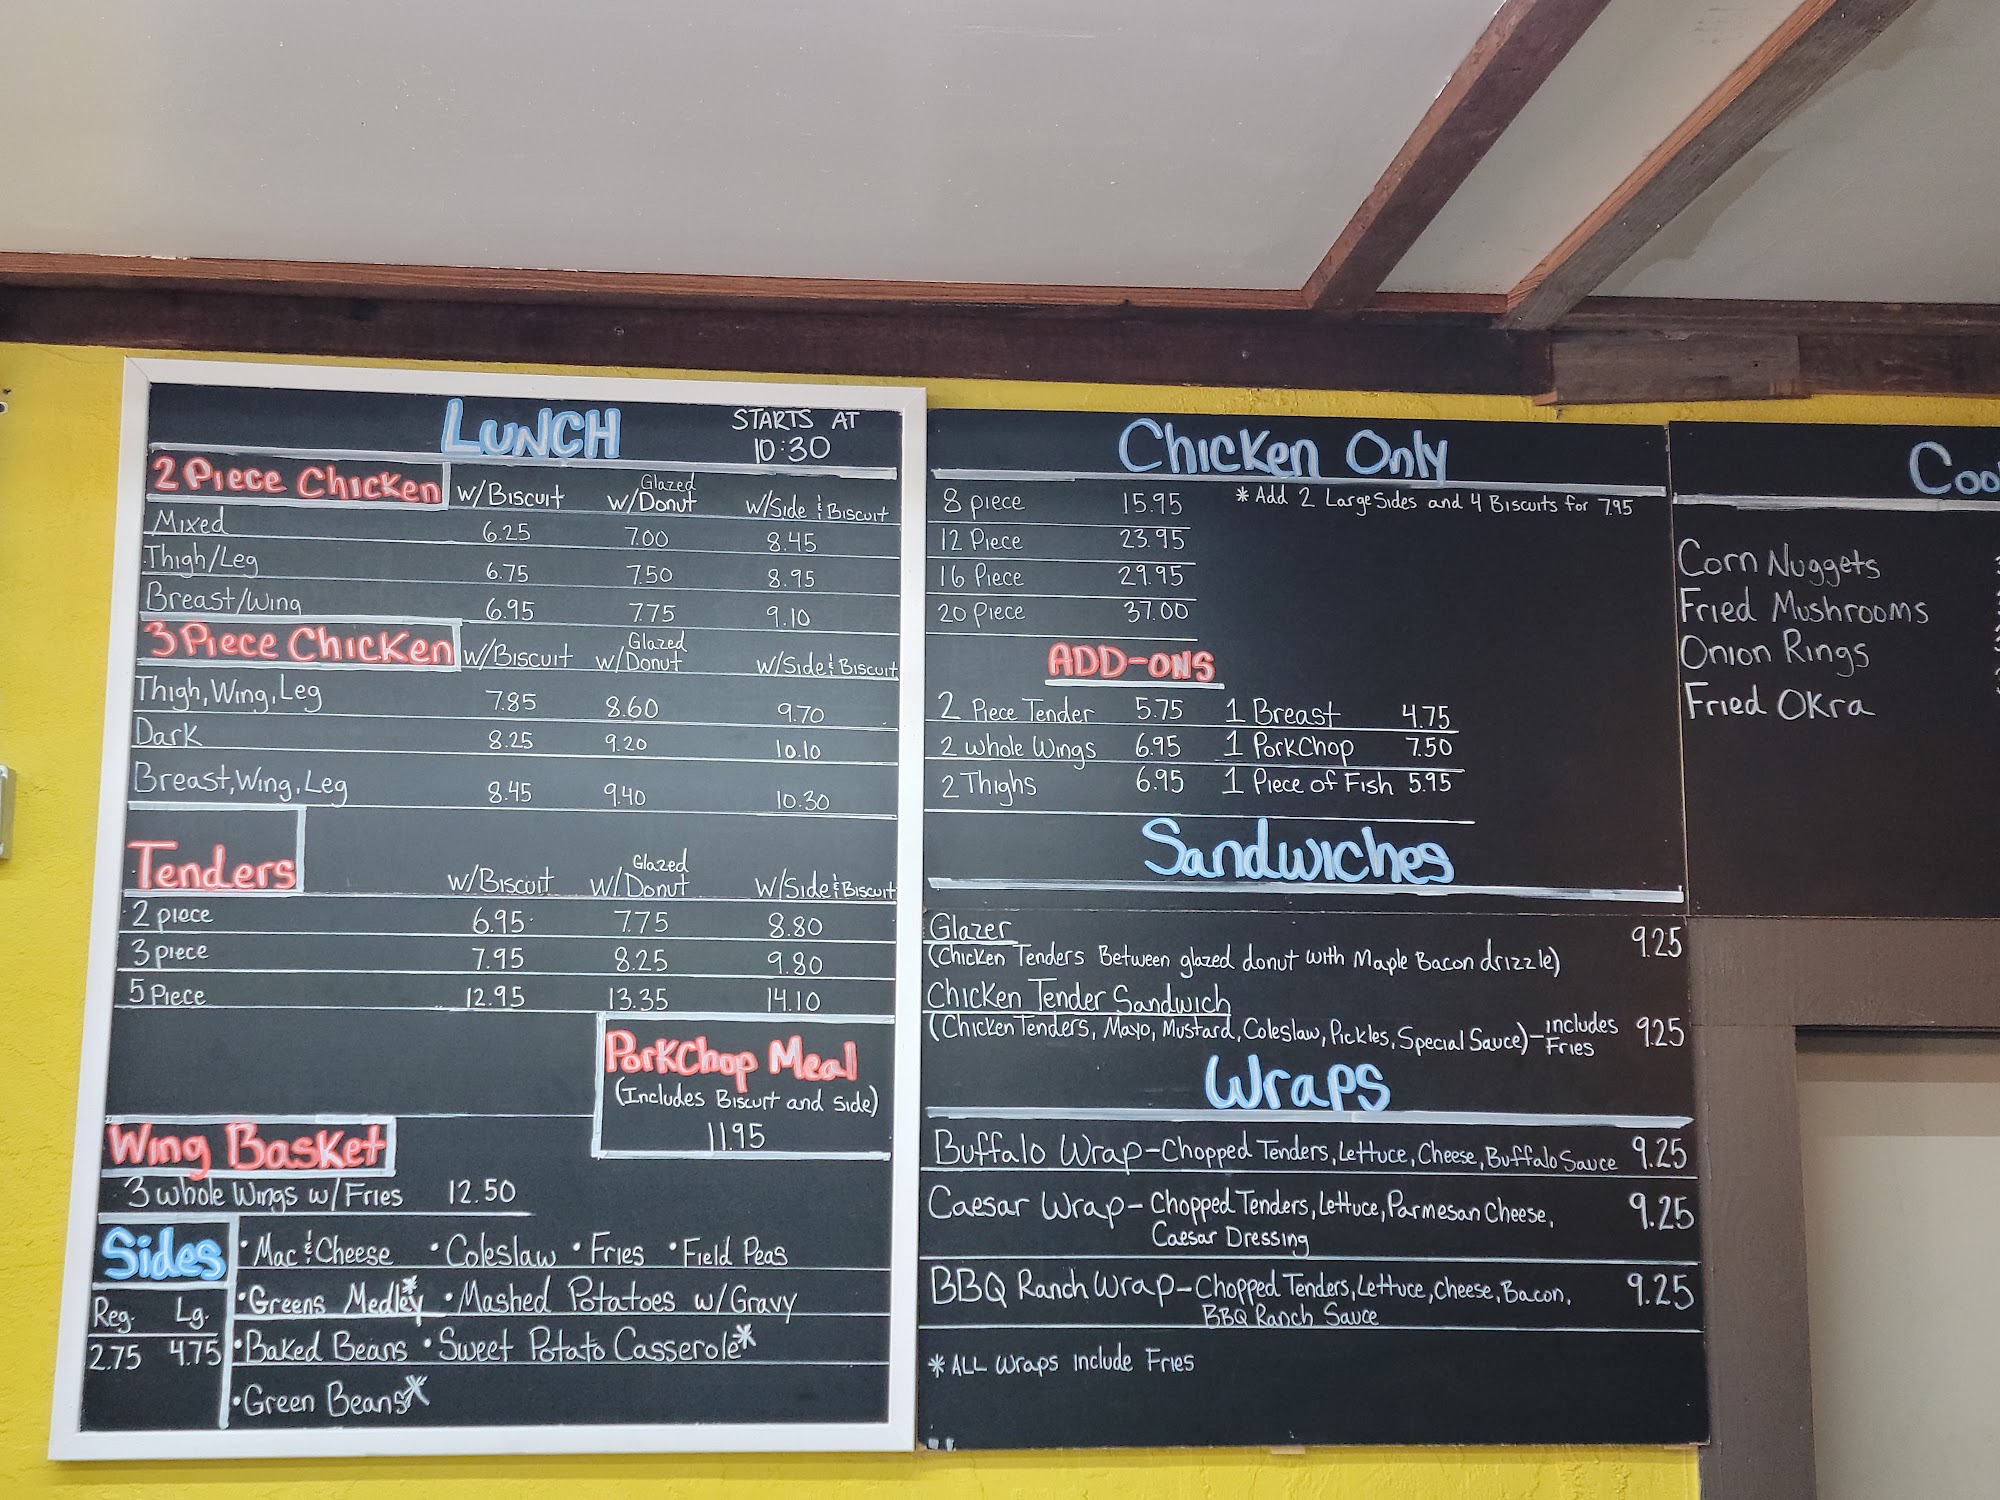 LUNCH STARTS AT 10:30
2 Piece Chicken w/Biscuit Glazed w/Donut w/Side & Biscuit
Mixed 6.25 7.00 8.45
Thigh/Leg 6.75 7.50 8.95
Breast/Wing 6.95 7.75 9.10
3 Piece Chicken w/Biscuit Glazed w/Donut w/Side & Biscuit
Thigh, Wing, Leg 7.85 8.60 9.70
Dark 8.25 9.20 10.10
Breast, Wing, Leg 8.45 9.40 10.30
Tenders w/Biscuit Glazed w/Donut w/Side & Biscuit
2 piece 6.95 7.75 8.80
3 piece 7.95 8.25 9.80
5 Piece 12.95 13.35 14.10
PorkChop Meal
(Includes Biscuit and side)
11.95
Wing Basket
3 whole Wings w/Fries 12.50
Sides
Reg. Lg.
2.75 4.75
• Mac & Cheese • Coleslaw • Fries • Field Peas
• Greens Medley* • Mashed Potatoes w/Gravy
• Baked Beans • Sweet Potato Casserole*
• Green Beans*
Chicken Only
8 piece 15.95 * Add 2 Large Sides and 4 Biscuits for 7.95
12 Piece 23.95
16 Piece 29.95
20 Piece 37.00
ADD-ONS
2 Piece Tender 5.75 1 Breast 4.75
2 whole Wings 6.95 1 PorkChop 7.50
2 Thighs 6.95 1 Piece of Fish 5.95
Sandwiches
Glazer 9.25
(Chicken Tenders Between glazed donut with Maple Bacon drizzle)
Chicken Tender Sandwich
(Chicken Tenders, Mayo, Mustard, Coleslaw, Pickles, Special Sauce) - includes Fries 9.25
Wraps
Buffalo Wrap - Chopped Tenders, Lettuce, Cheese, Buffalo Sauce 9.25
Caesar Wrap - Chopped Tenders, Lettuce, Parmesan Cheese, 9.25
Caesar Dressing
BBQ Ranch Wrap - Chopped Tenders, Lettuce, Cheese, Bacon, 9.25
BBQ Ranch Sauce
* ALL Wraps Include Fries
Corn Nuggets
Fried Mushrooms
Onion Rings
Fried Okra